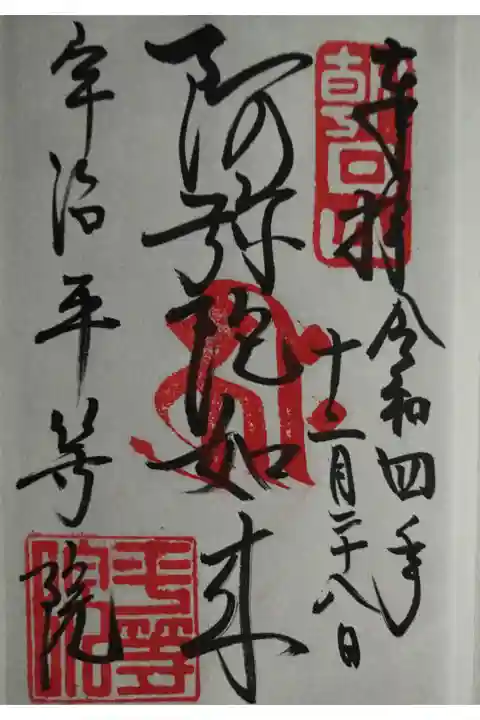 奉拝
令和四年
十二月二十八日
阿弥陀如来
宇治平等院
朝日山
平等院